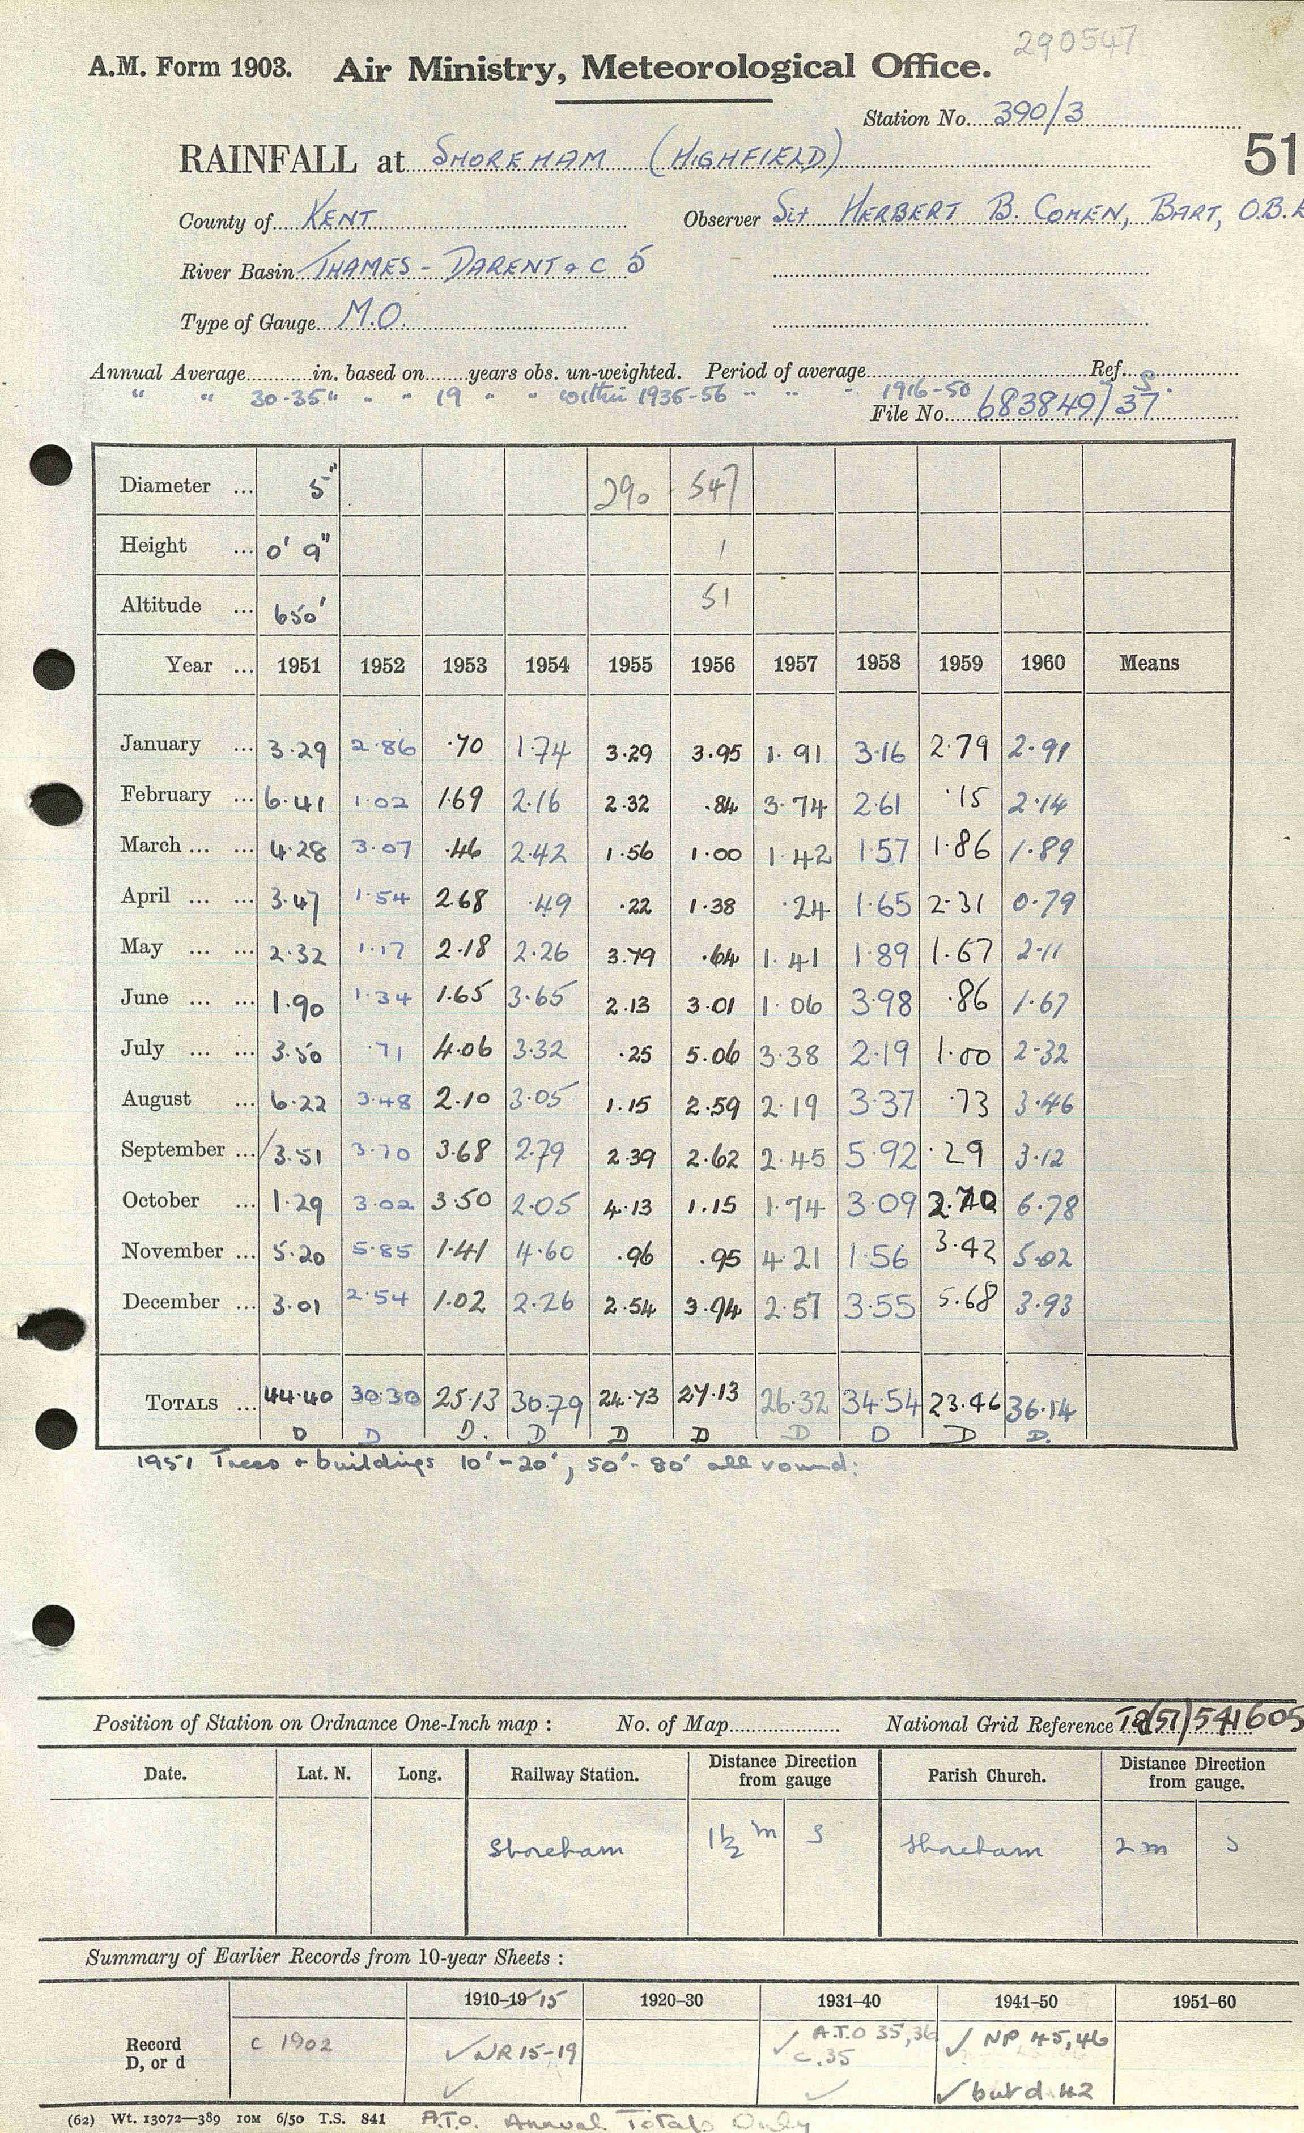 290547
A.M. Form 1903. Air Ministry, Meteorological Office.
Station No. 390/3
51
RAINFALL at SHOREHAM (HIGHFIELD)
County of KENT Observer Sir HERBERT B. COHEN, BART, O.B.E
River Basin THAMES - DARENT & C 5
Type of Gauge M.O.
Annual Average in. based on years obs. un-weighted. Period of average Ref.
" " 30-35" " " 19 " " within 1935-56 " " " 1916-50
File No. 683849/37
Diameter ... 5" 290 547
Height ... 0' 9" 1
Altitude ... 650' 51
Year ... 1951 1952 1953 1954 1955 1956 1957 1958 1959 1960 Means
January ... 3.29 2.86 .70 1.74 3.29 3.95 1.91 3.16 2.79 2.91
February ... 6.41 1.02 1.69 2.16 2.32 .84 3.74 2.61 .15 2.14
March ... ... 4.28 3.07 .46 2.42 1.56 1.00 1.42 1.57 1.86 1.89
April ... ... 3.47 1.54 2.68 .49 .22 1.38 .24 1.65 2.31 0.79
May ... ... 2.32 1.17 2.18 2.26 3.79 .64 1.41 1.89 1.67 2.11
June ... ... 1.90 1.34 1.65 3.65 2.13 3.01 1.06 3.98 .86 1.67
July ... ... 3.50 .71 4.06 3.32 .25 5.06 3.38 2.19 1.00 2.32
August ... 6.22 3.48 2.10 3.05 1.15 2.59 2.19 3.37 .73 3.46
September ... 3.51 3.70 3.68 2.79 2.39 2.62 2.45 5.92 .29 3.12
October ... 1.29 3.02 3.50 2.05 4.13 1.15 1.74 3.09 2.70 6.78
November ... 5.20 5.85 1.41 4.60 .96 .95 4.21 1.56 3.42 5.02
December ... 3.01 2.54 1.02 2.26 2.54 3.94 2.57 3.55 5.68 3.93
TOTALS ... 44.40 30.30 25.13 30.79 24.73 27.13 26.32 34.54 23.46 36.14
D D D. D D D D D D D.
1951 Trees & buildings 10'-20', 50'-80' all round:
Position of Station on Ordnance One-Inch map : No. of Map National Grid Reference TQ(51)541605
Date. Lat. N. Long. Railway Station. Distance from gauge Direction Parish Church. Distance from gauge. Direction
Shoreham 1½ m S Shoreham 2 m S
Summary of Earlier Records from 10-year Sheets :
1910-19 15 1920-30 1931-40 1941-50 1951-60
Record D, or d c 1902 ✓NR 15-19 ✓ A.T.O 35,36 ✓ NP 45,46
c.35
✓ ✓ ✓ but d 42
(62) Wt. 13072—389 10M 6/50 T.S. 841 P.T.O. Annual Totals Only